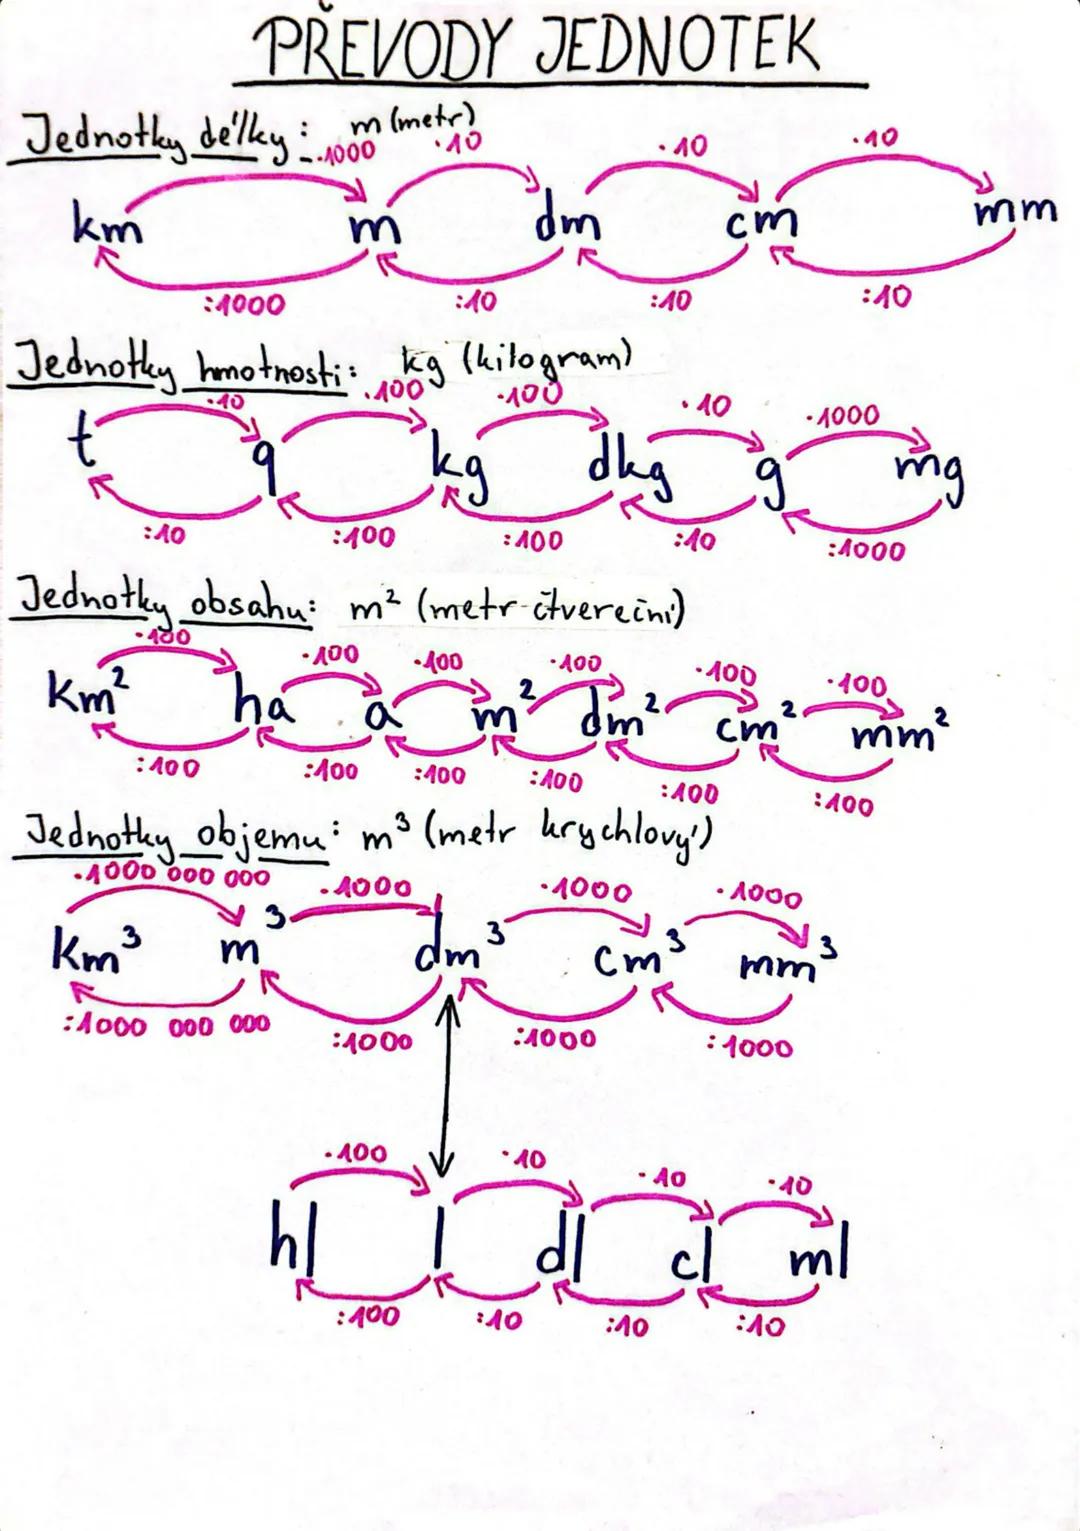 PŘEVODY JEDNOTEK
Jednotky délky: m (metr)
.1000 .10 .10 .10
km m dm cm mm
:1000 :10 :10 :10
Jednotky hmotnosti: kg (kilogram)
.10 .100 .100 .10 .1000
t q kg dkg g mg
:10 :100 :100 :10 :1000
Jednotky obsahu: m² (metr čtvereční)
.100 .100 .100 .100 .100 .100
km² ha a m² dm² cm² mm²
:100 :100 :100 :100 :100 :100
Jednotky objemu: m³ (metr krychlový)
.1000 000 000 .1000 .1000 .1000
km³ m³ dm³ cm³ mm³
:1000 000 000 :1000 :1000 :1000
.100 .10 .10 .10
hl l dl cl ml
:100 :10 :10 :10